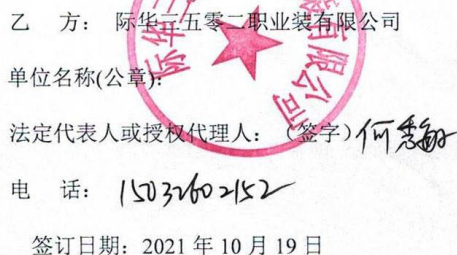 乙 方: 际华三五零二职业装有限公司
单位名称(公章):
法定代表人或授权代理人: (签字)何秀
电 话: 15032602152
签订日期: 2021 年 10 月 19 日